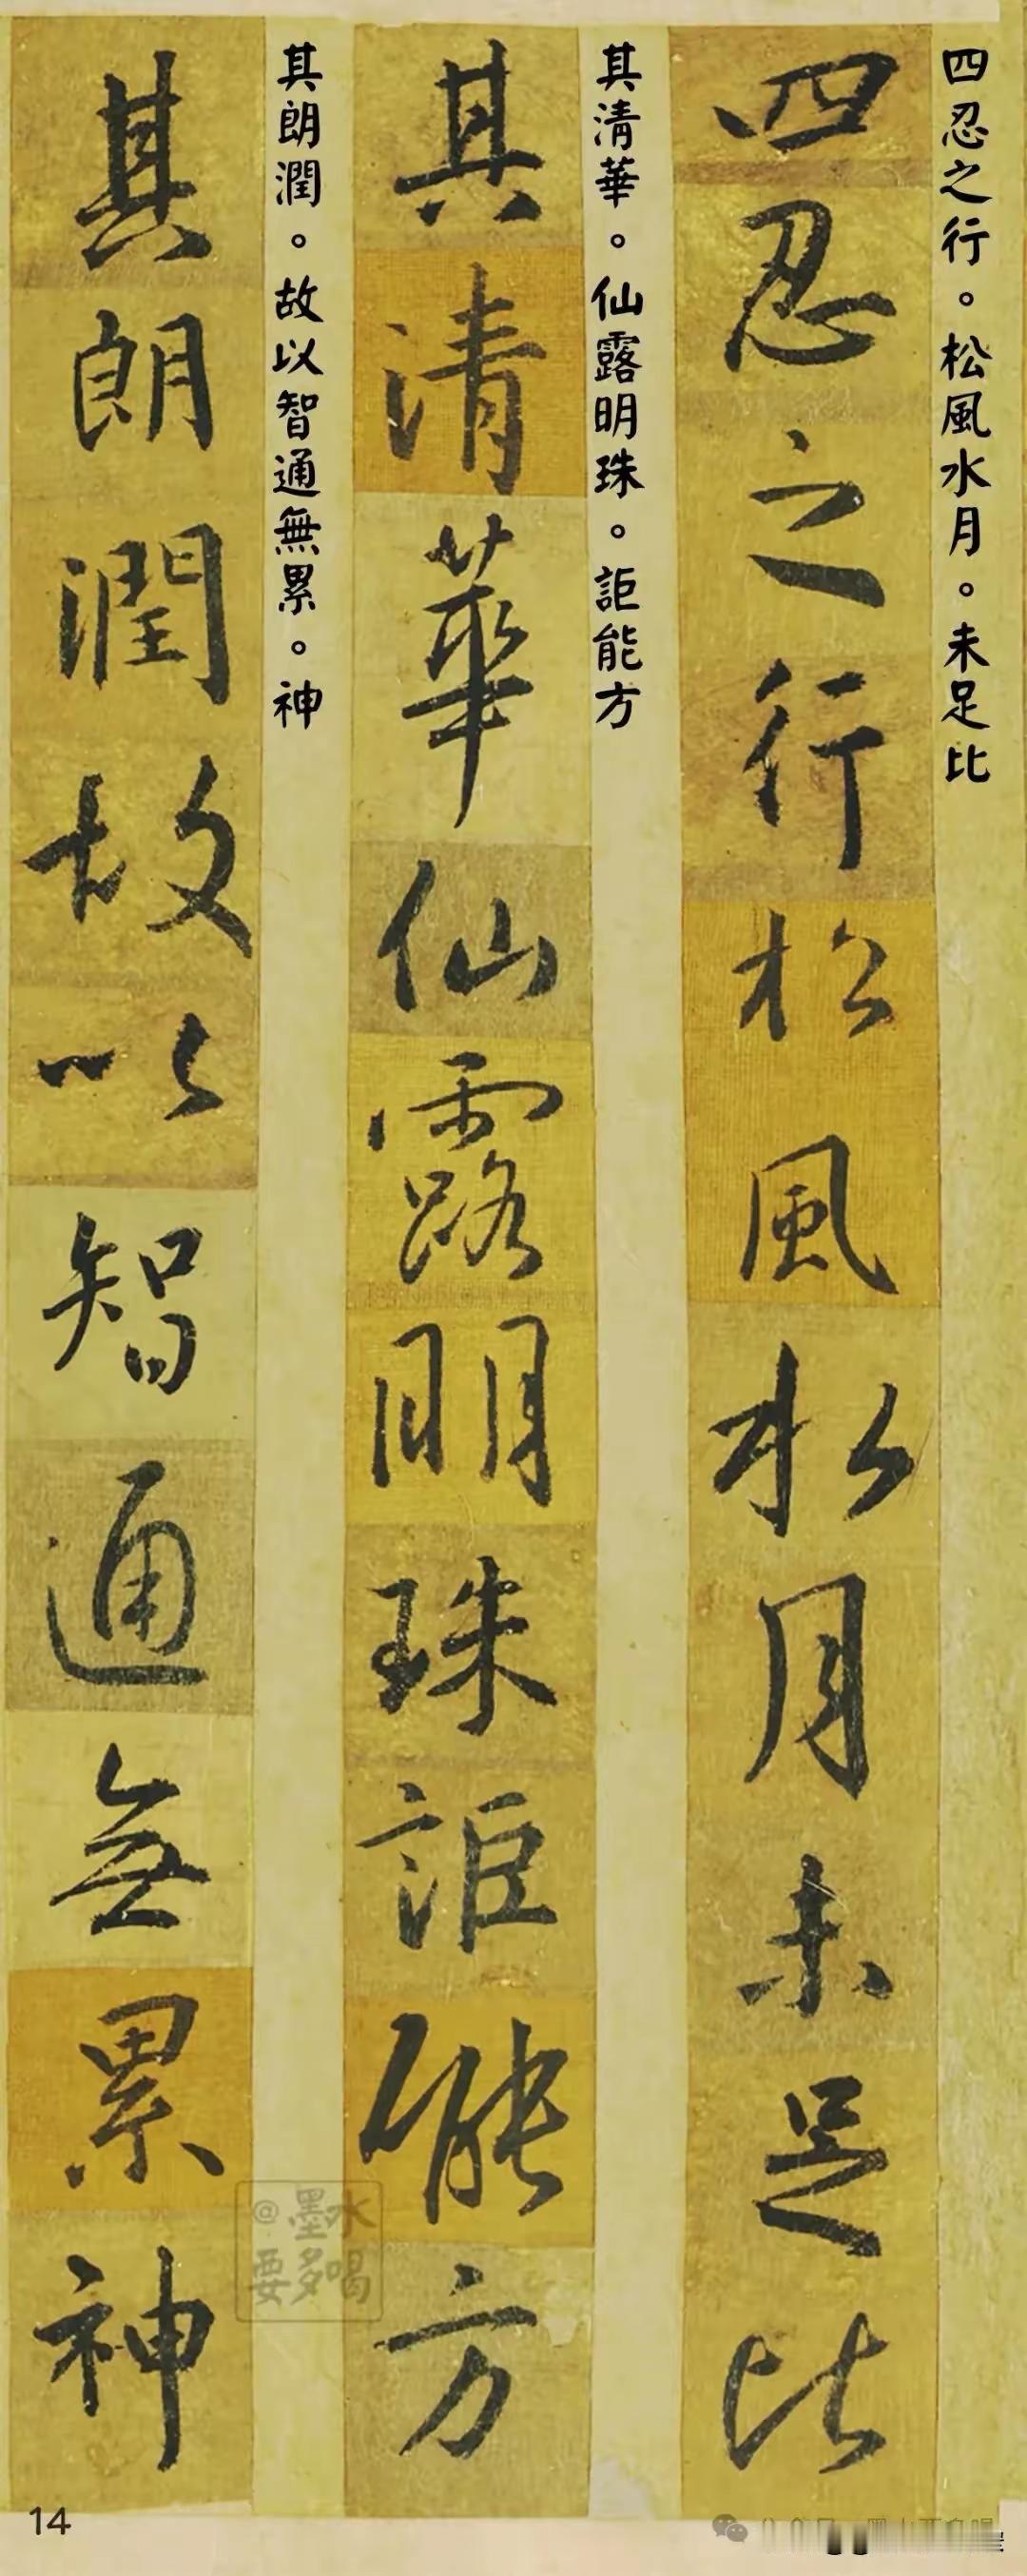 四忍之行。松風水月。未足比
四忍之行松風水月未足比
其清華。仙露明珠。詎能方
其清華仙露明珠詎能方
其朗潤。故以智通無累。神
其朗潤故以智通無累神
@墨水
要多喝
14